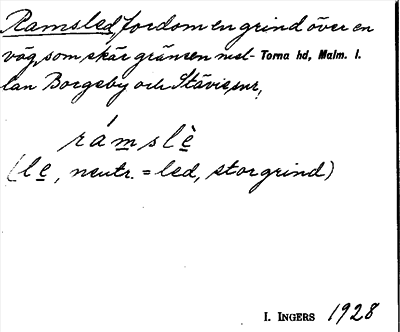 Ramsled, fordom en grind över en
väg, som skär gränsen mel- Torna hd, Malm. l.
lan Borgeby och Stävie snr.
rámslè
(le, neutr. = led, storgrind)
I. INGERS 1928